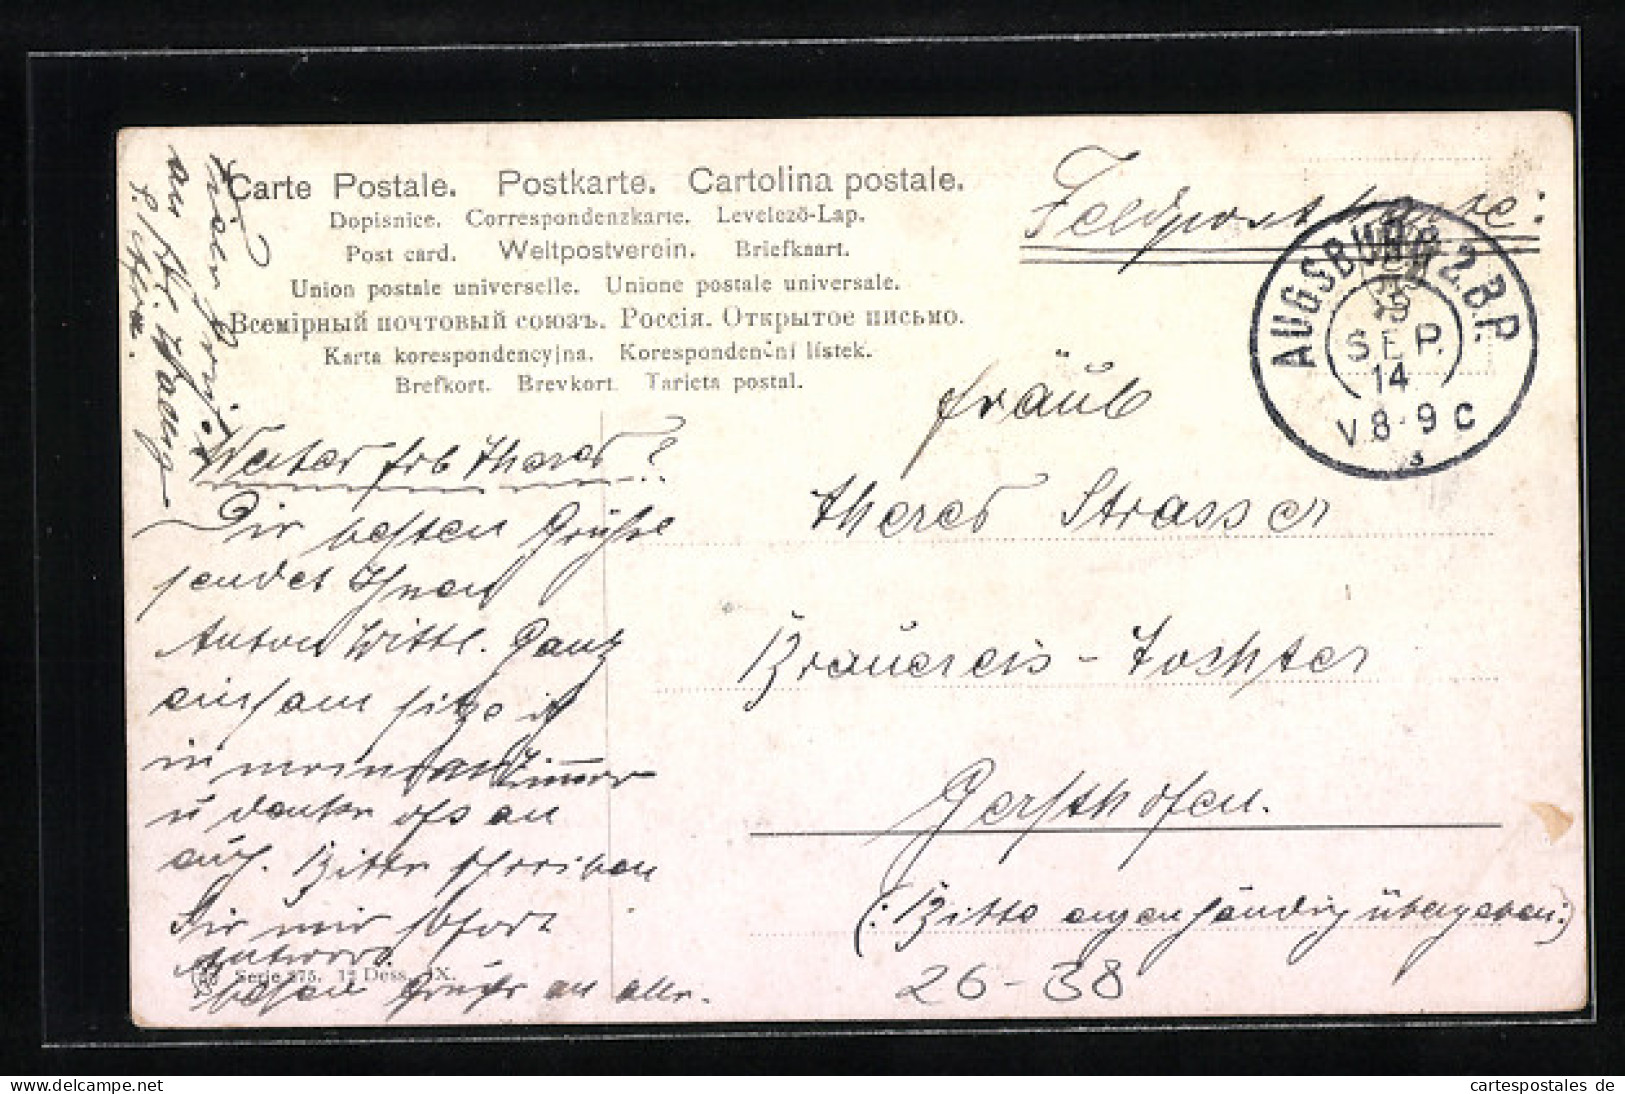 Carte Postale. Postkarte. Cartolina postale.
Dopisnice. Correspondenzkarte. Levelező-Lap.
Post card. Weltpostverein. Briefkaart.
Union postale universelle. Unione postale universale.
Всемірный почтовый союзъ. Россія. Открытое письмо.
Karta korespondencyjna. Korespondenční lístek.
Brefkort. Brevkort. Tarjeta postal.
Feldpostkarte:
AUGSBURG 2. B.P.
15
SEP.
14
V. 8-9 C
Fräul
Theres Strasser
Brauereis-Tochter
Gersthofen.
(: Bitte eigenhändig übergeben :)
26-38
Wertes Frl Theres!
Die besten Grüße
sendet Ihnen
Anton Wittl. Ganz
einsam sitze ich
in meinem Zimmer
u denke oft an
euch. Bitte schreiben
Sie mir sofort
Antwort.
Serie 375. 12 Dess. IX.
Grüße an alle.